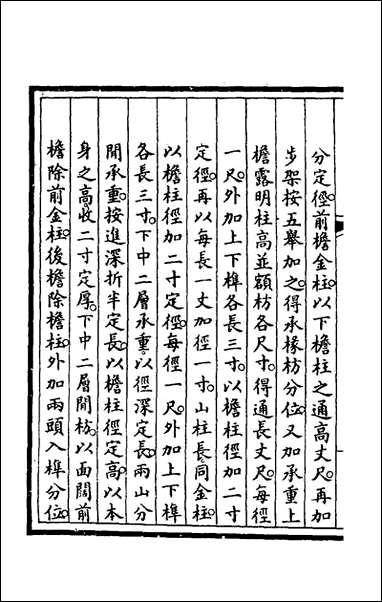 分定徑前檐金柱以下檐柱之通高丈尺再加
步架按五舉加之得承椽枋分位又加承重上
檐露明柱高並額枋各尺寸得通長丈尺每徑
一尺外加上下榫各長三寸以檐柱徑加二寸
定徑再以每長一丈加徑一寸山柱長同金柱
以檐柱徑加二寸定徑每徑一尺外加上下榫
各長三寸下中二層承重以徑深定長兩山分
間承重按進深折半定長以檐柱徑定高以本
身之高收二寸定厚下中二層間枋以面闊前
檐除前金柱後檐除檐柱外加兩頭入榫分位